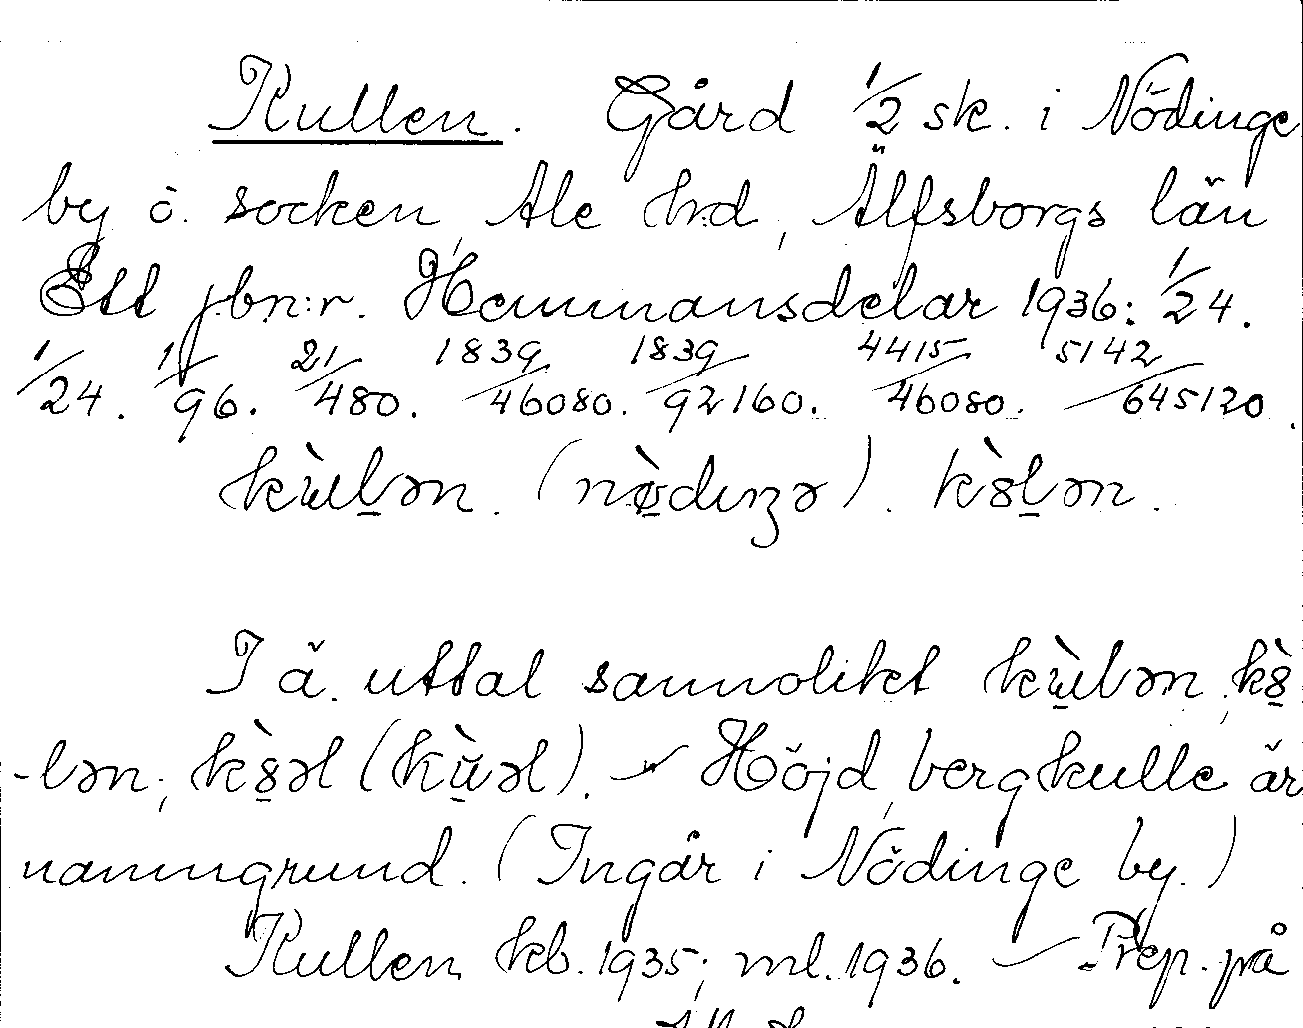 Kullen. Gård 1/2 sk. i Nödinge
by o. socken, Ale hd, Älfsborgs län
Ett jbn:r. Hemmansdelar 1936: 1/24.
1/24. 1/96. 21/480. 1839/46080. 1839/92160. 4415/46080. 5142/645120.
I ä. uttal sannolikt
Höjd, bergkulle är
namngrund. (Ingår i Nödinge by.)
Kullen kb. 1935; ml. 1936. — Prep. på